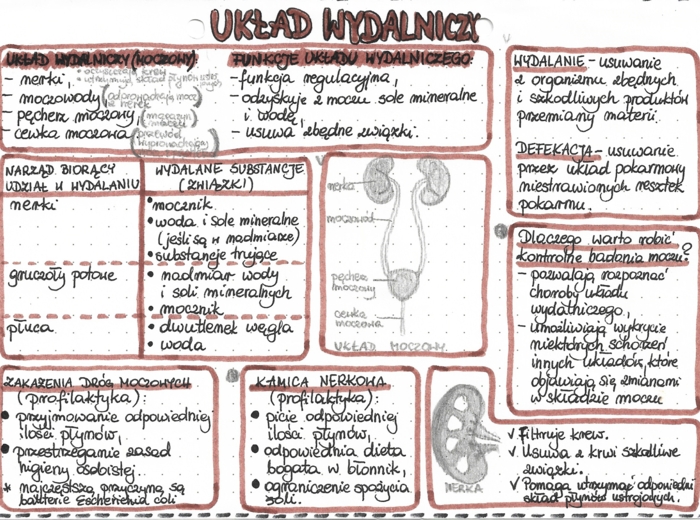 UKŁAD WYDALNICZY
UKŁAD WYDALNICZY (MOCZOWY):
- nerki,
• oczyszczają krew
• utrzymują skład płynów
- moczowody
(odprowadzają mocz
z nerek
- pęcherz moczowy,
(magazyn
moczu)
- cewka moczowa
(przewód
wyprowadzający
FUNKCJE UKŁADU WYDALNICZEGO:
- funkcja regulacyjna,
- odzyskuje z moczu sole mineralne
i wodę,
- usuwa zbędne związki.
WYDALANIE - usuwanie
z organizmu zbędnych
i szkodliwych produktów
przemiany materii.
DEFEKACJA - usuwanie
przez układ pokarmowy
niestrawionych resztek
pokarmu.
NARZĄD BIORĄCY
UDZIAŁ W WYDALANIU
WYDALANE SUBSTANCJE
(ZWIĄZKI)
nerki
• mocznik
• woda i sole mineralne
(jeśli są w nadmiarze)
• substancje trujące
gruczoły potowe
• nadmiar wody
i soli mineralnych
• mocznik
płuca
• dwutlenek węgla
• woda
nerka
moczowód
pęcherz
moczowy
cewka
moczowa
UKŁAD MOCZOWY.
Dlaczego warto robić
kontrolne badania moczu?
- pozwalają rozpoznać
choroby układu
wydalniczego,
- umożliwiają wykrycie
niektórych schorzeń
innych układów, które
objawiają się zmianami
w składzie moczu
ZAKAŻENIA DRÓG MOCZOWYCH
(profilaktyka):
• przyjmowanie odpowiedniej
ilości płynów,
• przestrzeganie zasad
higieny osobistej.
* najczęstszą przyczyną są
bakterie Escherichia coli
KAMICA NERKOWA
(profilaktyka):
• picie odpowiedniej
ilości płynów,
• odpowiednia dieta
bogata w błonnik,
• ograniczenie spożycia
soli.
NERKA
✓ Filtruje krew.
✓ Usuwa z krwi szkodliwe
związki.
✓ Pomaga utrzymać odpowiedni
skład płynów ustrojowych.